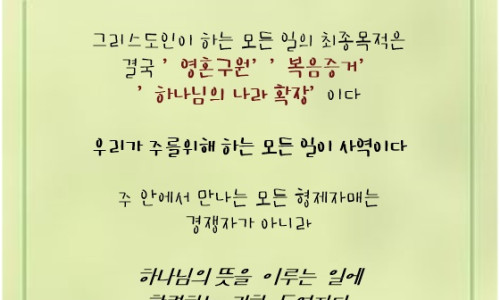 그리스도인이 하는 모든 일의 최종목적은
결국 ' 영혼구원' ' 복음증거'
' 하나님의 나라 확장' 이다
우리가 주를위해 하는 모든 일이 사역이다
주 안에서 만나는 모든 형제자매는
경쟁자가 아니라
하나님의 뜻을 이루는 일에